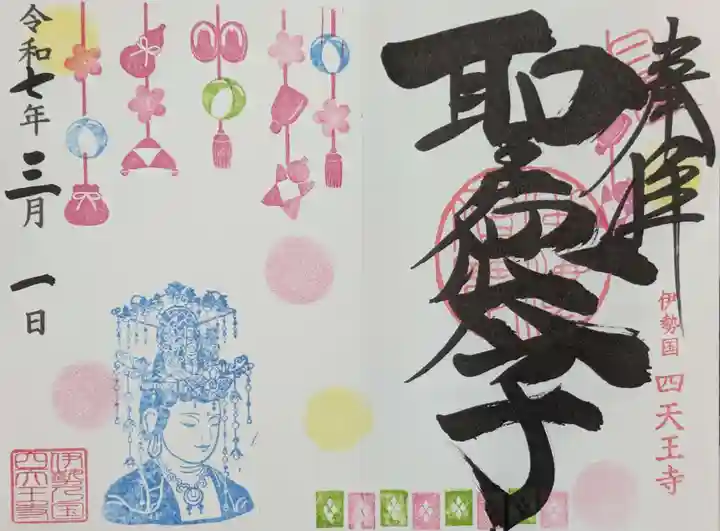 奉拝
聖徳太子
伊勢国 四天王寺
令和七年三月一日
伊勢之国
四天王寺